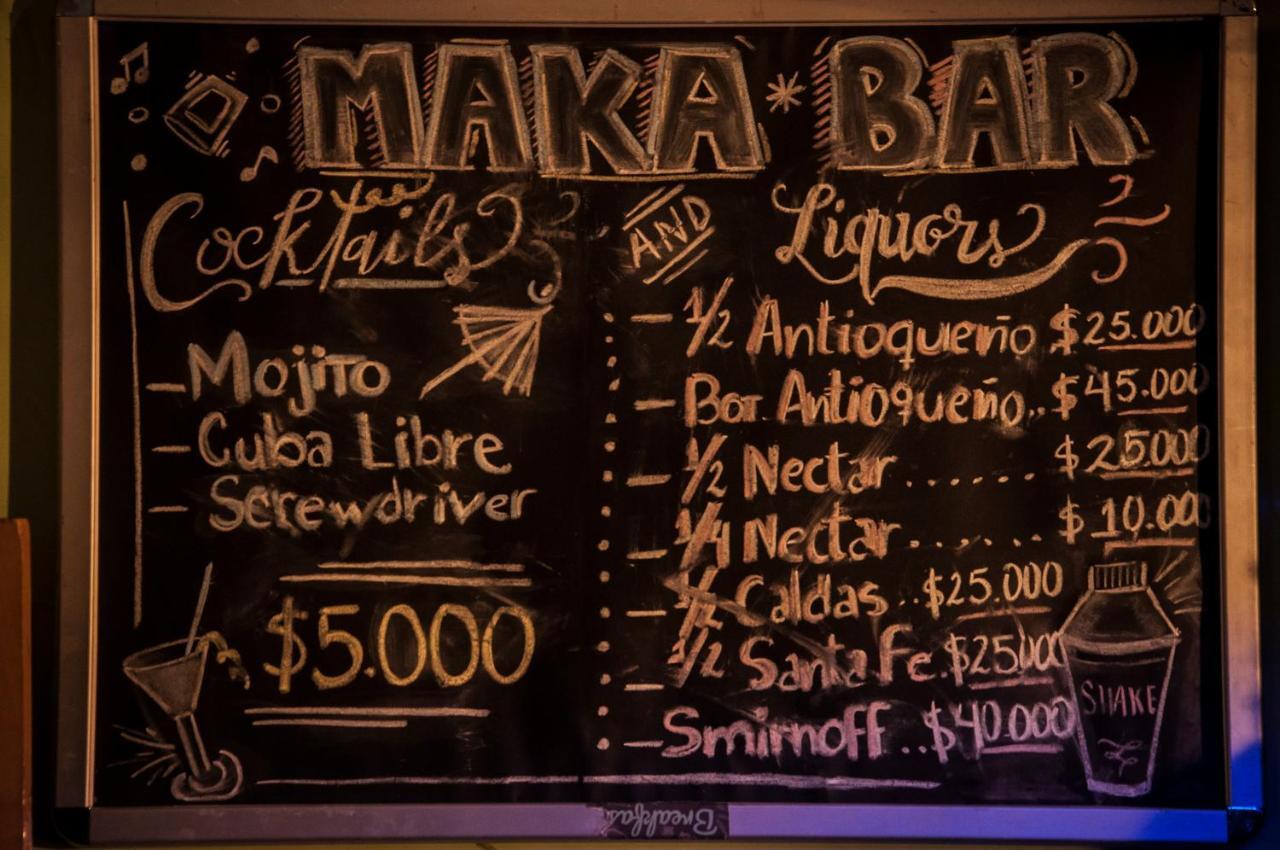 MAKA * BAR
Cocktails
Yes
AND
Liquors
- Mojito
- Cuba Libre
- Screwdriver
$5.000
- 1/2 Antioqueño $25.000
- Bot. Antioqueño.. $45.000
- 1/2 Nectar ...... $25.000
- 1/4 Nectar ...... $10.000
- 1/2 Caldas.. $25.000
- 1/2 Santa Fe. $25.000
- Smirnoff.. $40.000
SHAKE
Breakfas